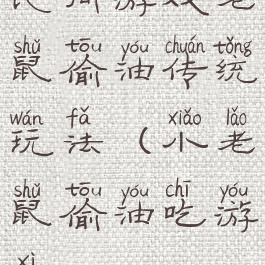 民间游戏老
shǔ tōu yóu chuán tǒng
鼠偷油传统
wán fǎ xiǎo lǎo
玩法（小老
shǔ tōu yóu chī yóu
鼠偷油吃游
xì